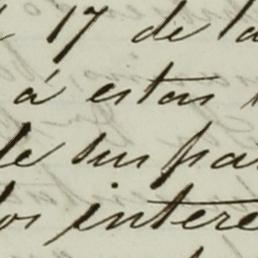 17 de la
á estas
de sus pa
los intere